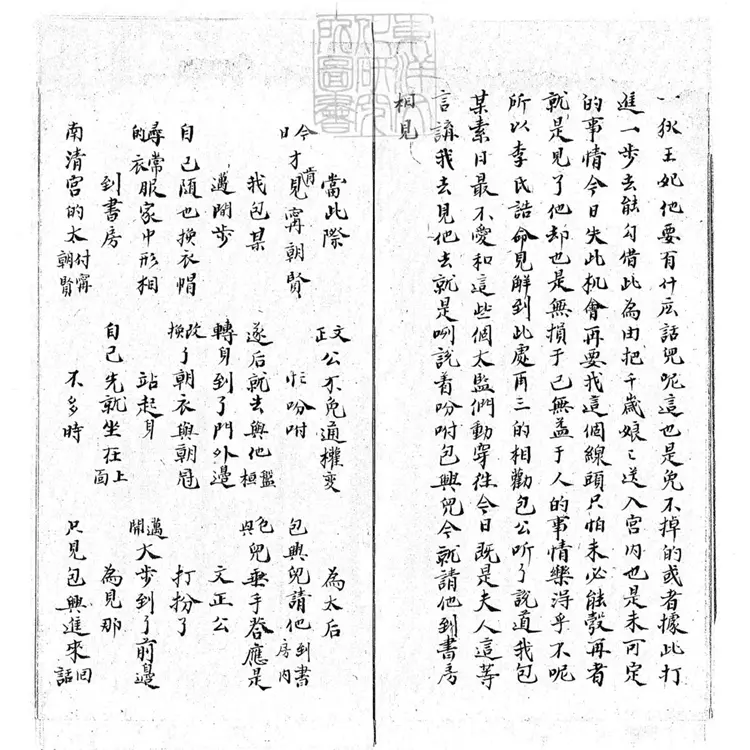 東洋文化研究所圖書
一狄王妃他要有什庅話兒呢這也是免不掉的或者據此打
進一步去能勾借此為由把千歲娘〻送入宮內也是未可定
的事情今日失此机會再要我這個線頭只怕未必能彀再者
就是見了他却也是無損于己無益于人的事情樂得乎不呢
所以李氏誥命見解到此處再三的相勸包公听了說道我包
某素日最不愛和這些個太監們動穿徃今日既是夫人這等
言講我去見他去就是咧說着吩咐包興兒今就請他到書房
相見
當此際 文正公不免通權变 為太后
今日才肯見寗朝賢 忙吩咐 包興兒請他到書房內
我包某 遂后就去與他盤桓 包興兒垂手答應是
邁開步 轉身到了門外邊 文正公
自己隨也換衣帽 改換了朝衣與朝冠 打扮了
尋常的衣服家中形相 站起身 邁開大步到了前邊
到書房 自己先就坐在上面 為見那
南清宮的太付寗朝賢 不多時 只見包興進來回話